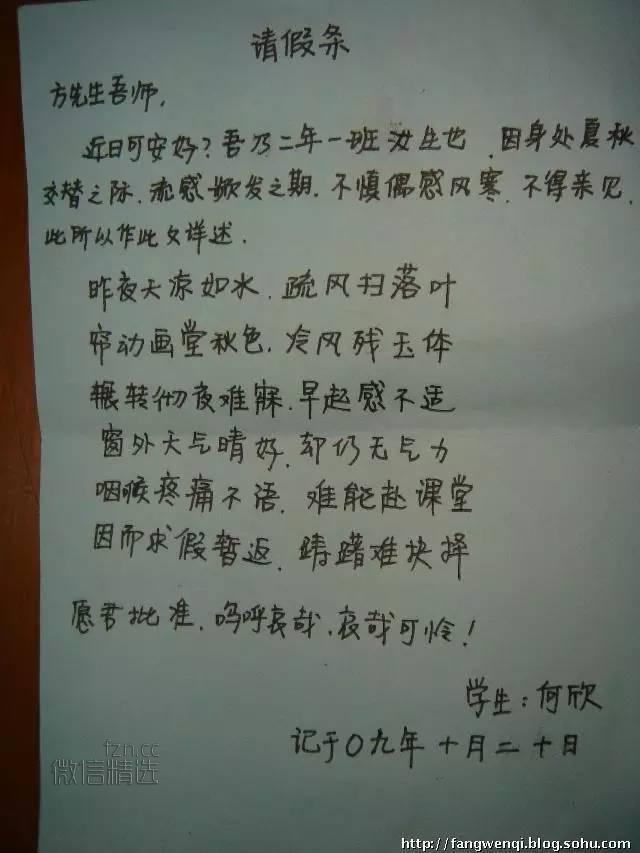 请假条
方先生吾师，
近日可安好？吾乃二年一班汝生也，因身处夏秋
交替之际，流感掀发之期，不慎偶感风寒，不得亲见，
此所以作此文详述。
昨夜天凉如水，疏风扫落叶
帘动画堂秋色，冷风残玉体
辗转彻夜难寐，早起感不适
窗外天气晴好，却仍无气力
咽喉疼痛不语，难能赴课堂
因而求假暂返，踌躇难抉择
愿君批准，呜呼哀哉，哀哉可怜！
学生：何欣
记于〇九年十月二十日
fzn.cc
微信精选
http://fangwenqi.blog.sohu.com